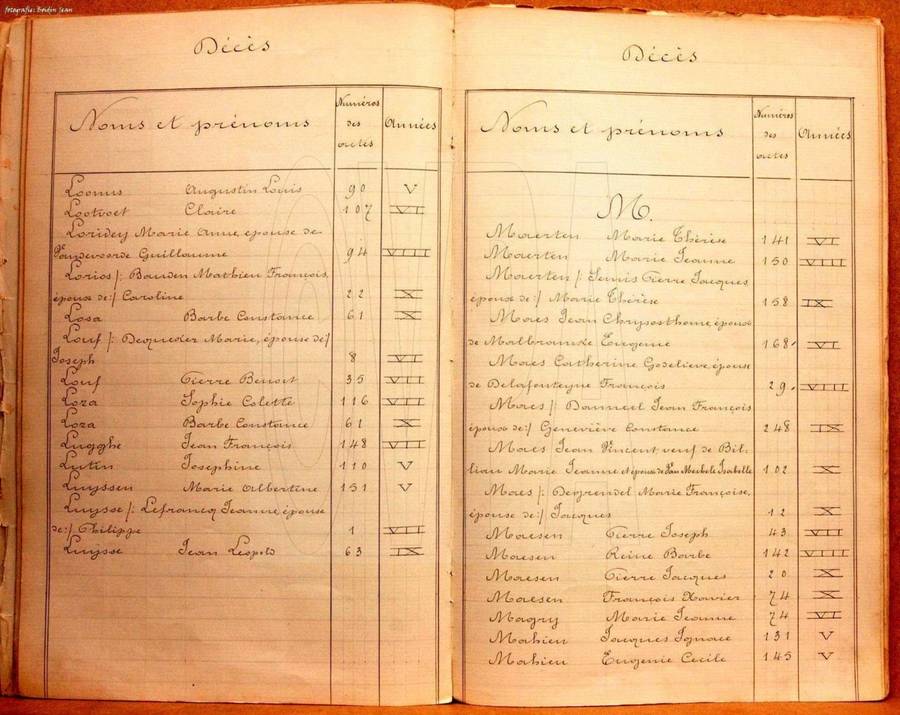 fotografie: Boidin Jean
Décès
Noms et prénoms Numéros des actes Années
Loonus Augustin Louis 90 V
Lootvoet Claire 107 VI
Loridey Marie Anne, épouse de
Vandevoorde Guillaume 94 VIII
Lorios /: Bauden Mathieu François,
épouse de:/ Caroline 22 X
Losa Barbe Constance 61 X
Louf /: Dequeker Marie, épouse de:/
Joseph 8 VI
Louf Pierre Benoit 35 VII
Loza Sophie Colette 116 VII
Loza Barbe Constance 61 X
Lugghe Jean François 148 VII
Lutin Josephine 110 V
Luyssen Marie Albertine 151 V
Luysse /: Lefrancq Jeanne, épouse
de:/ Philippe 1 VII
Luysse Jean Léopold 63 IX
Décès
Noms et prénoms Numéros des actes Années
M.
Maerten Marie Thérèse 141 VI
Maerten Marie Jeanne 150 VIII
Maerten /: Pierre Jacques
épouse de:/ Marie Thérèse 158 IX
Maes Jean Chrysosthome, époux
de Malbrancke Eugenie 168 VI
Maes Catherine Godelieve, épouse
de Delafonteyne François 29 VIII
Maes /: Danneel Jean François
épouse de:/ Geneviève Constance 248 IX
Maes Jean Vincent veuf de Bil-
liau Marie Jeanne et époux de Isabelle 102 X
Maes /: Marie Françoise,
épouse de:/ Jacques 12 X
Maesen Pierre Joseph 43 VII
Maesen Reine Barbe 142 VIII
Maesen Pierre Jacques 20 X
Maesen François Xavier 74 X
Magry Marie Jeanne 74 VI
Mahieu Jacques Ignace 131 V
Mahieu Eugenie Cecile 145 V